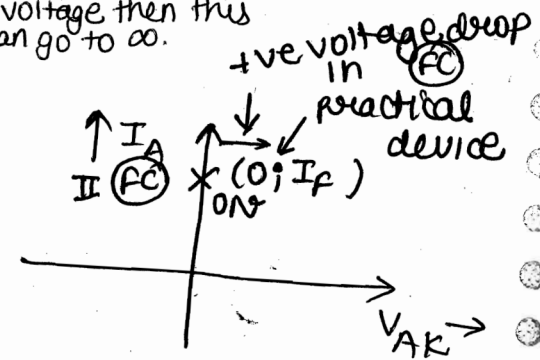 voltage then this
an go to ∞.
+ve voltage drop
in FC
practical
device
I_A
II FC (0; I_F)
ON
V_AK →